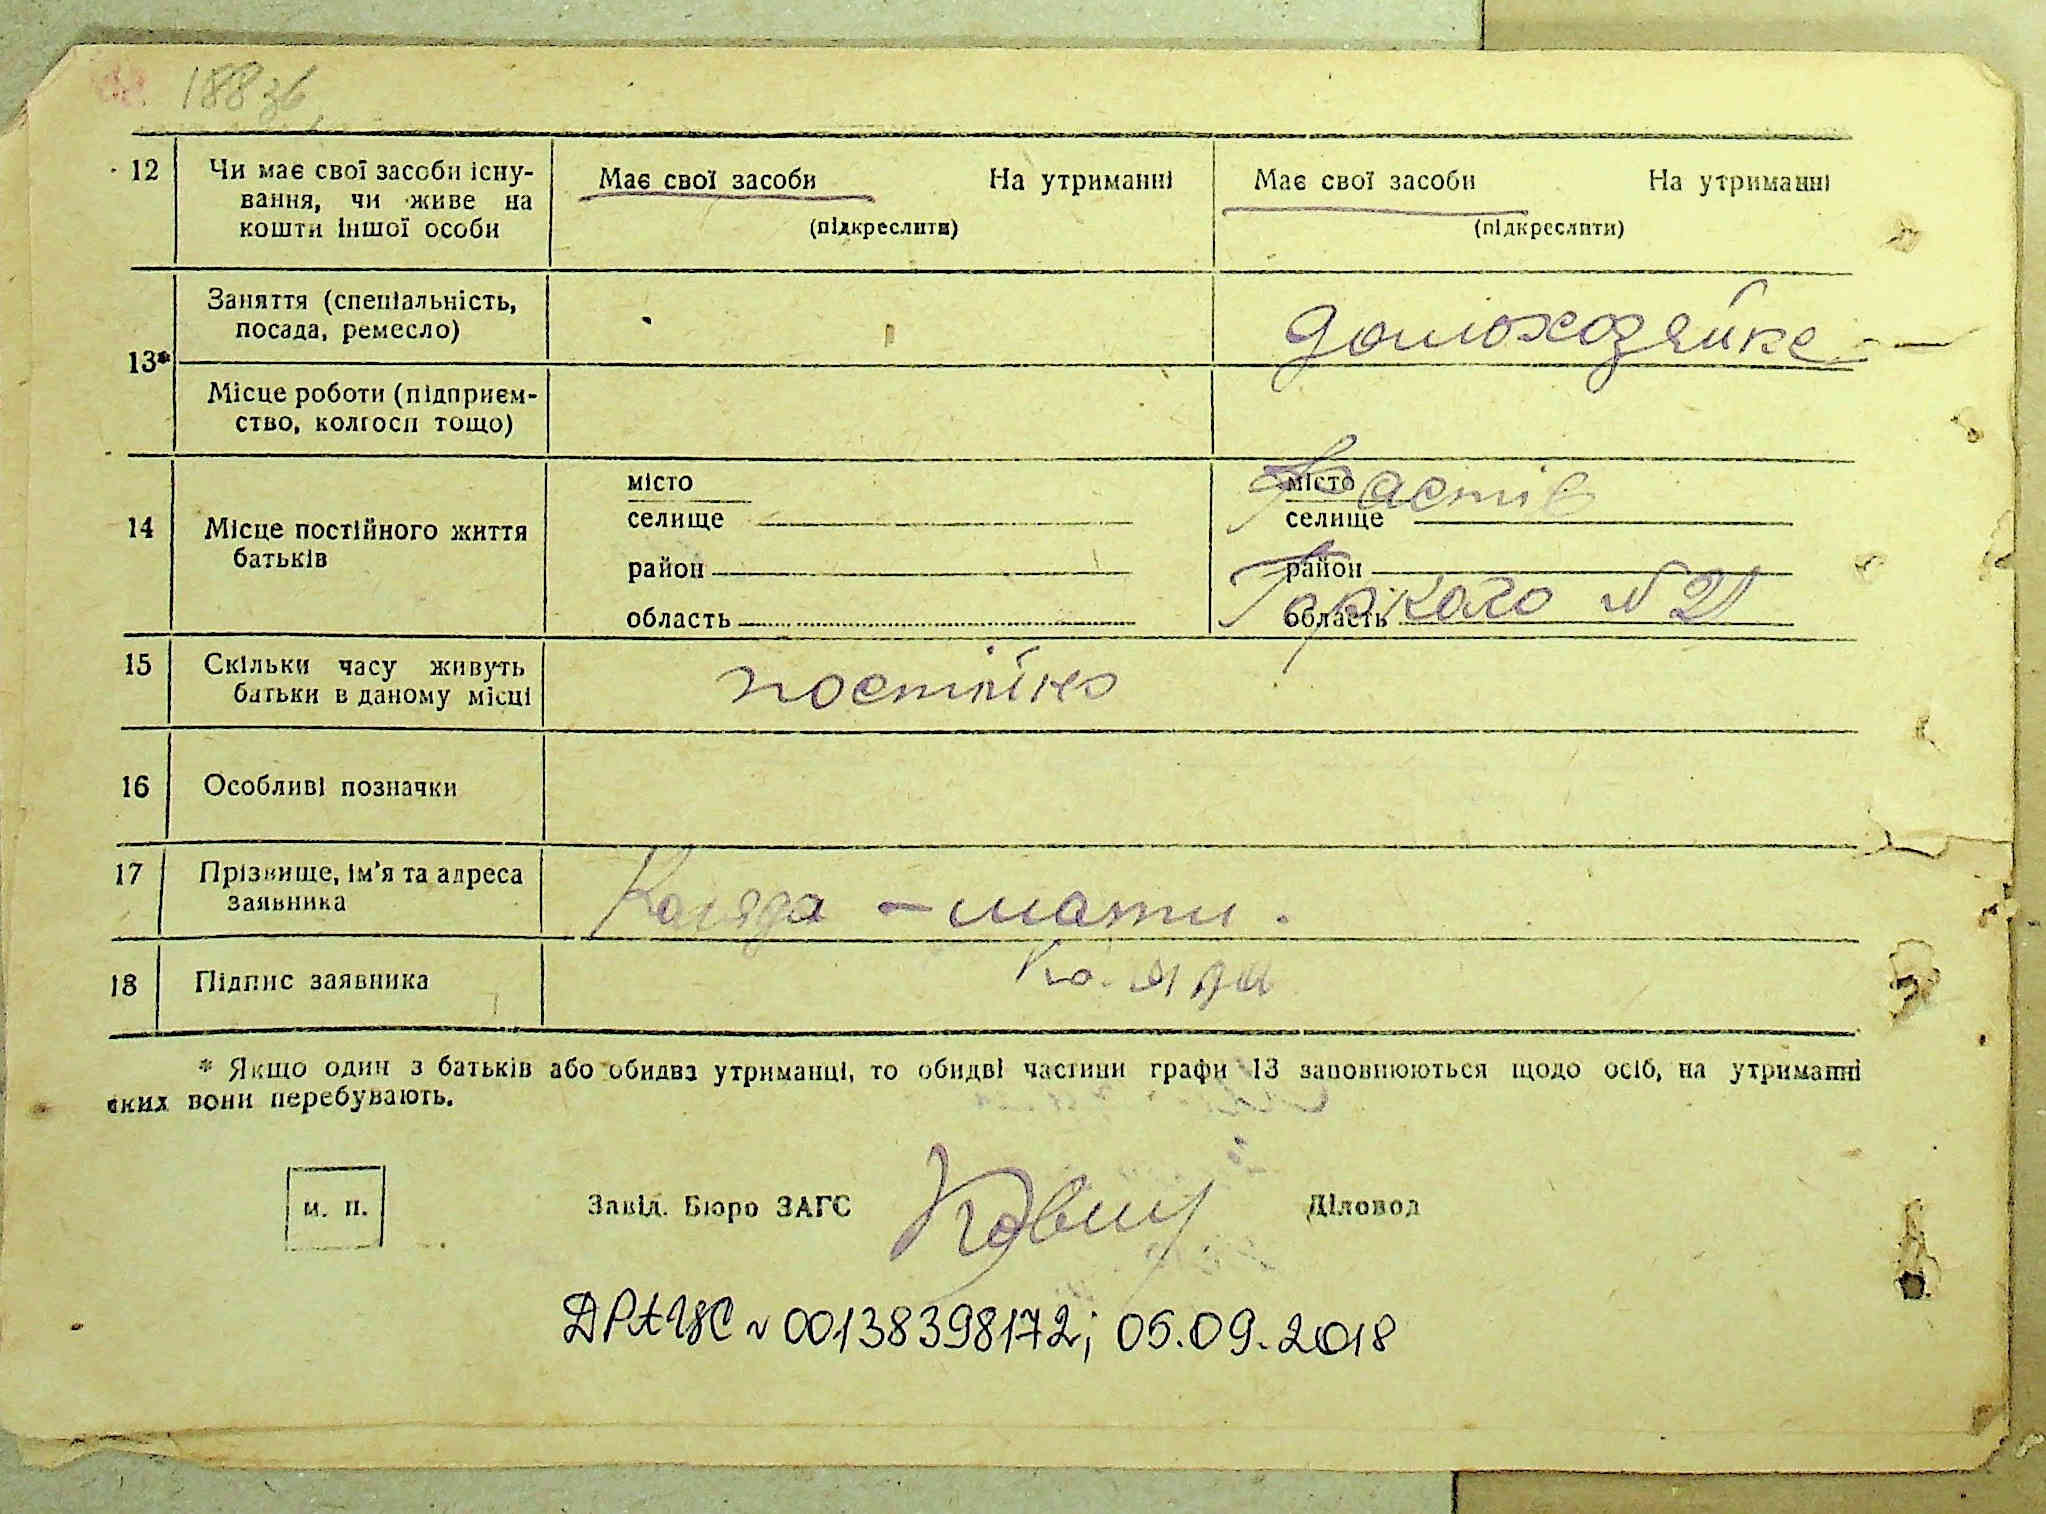 188 зв
12 Чи має свої засоби існу-
вання, чи живе на
кошти іншої особи
Має свої засоби На утриманні
(підкреслити)
Має свої засоби На утриманні
(підкреслити)
13*
Заняття (спеціальність,
посада, ремесло)
домохозяйка
Місце роботи (підприєм-
ство, колгосп тощо)
14 Місце постійного життя
батьків
місто
селище
район
область
місто Фастів
селище
район
область Горкого № 21
15 Скільки часу живуть
батьки в даному місці
постійно
16 Особливі позначки
17 Прізвище, ім'я та адреса
заявника
Коляда – мати.
18 Підпис заявника
Коляда
* Якщо один з батьків або обидва утриманці, то обидві частини графи 13 заповнюються щодо осіб, на утриманні
яких вони перебувають.
м. п.
Завід. Бюро ЗАГС
Діловод
ДРАЦС № 00138398172; 05.09.2018